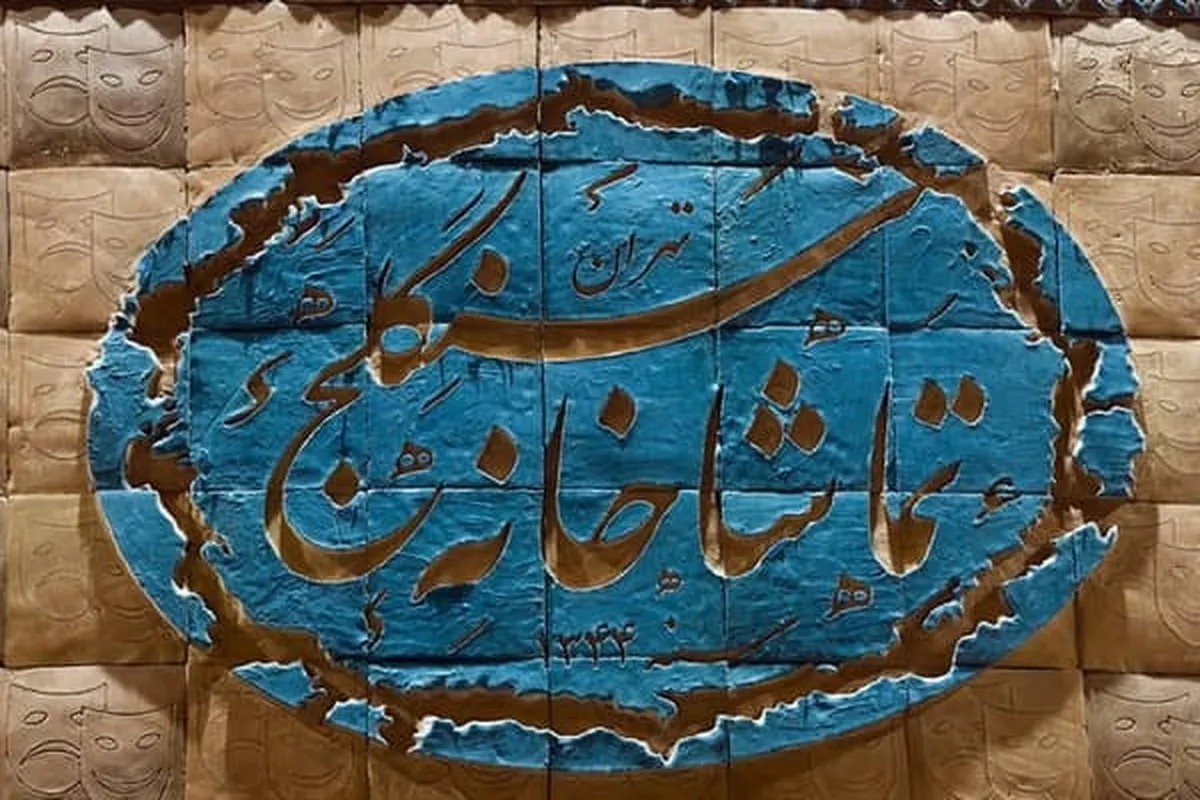 تهران
سنگلج
تماشاخانه
سنه ۱۳۴۴